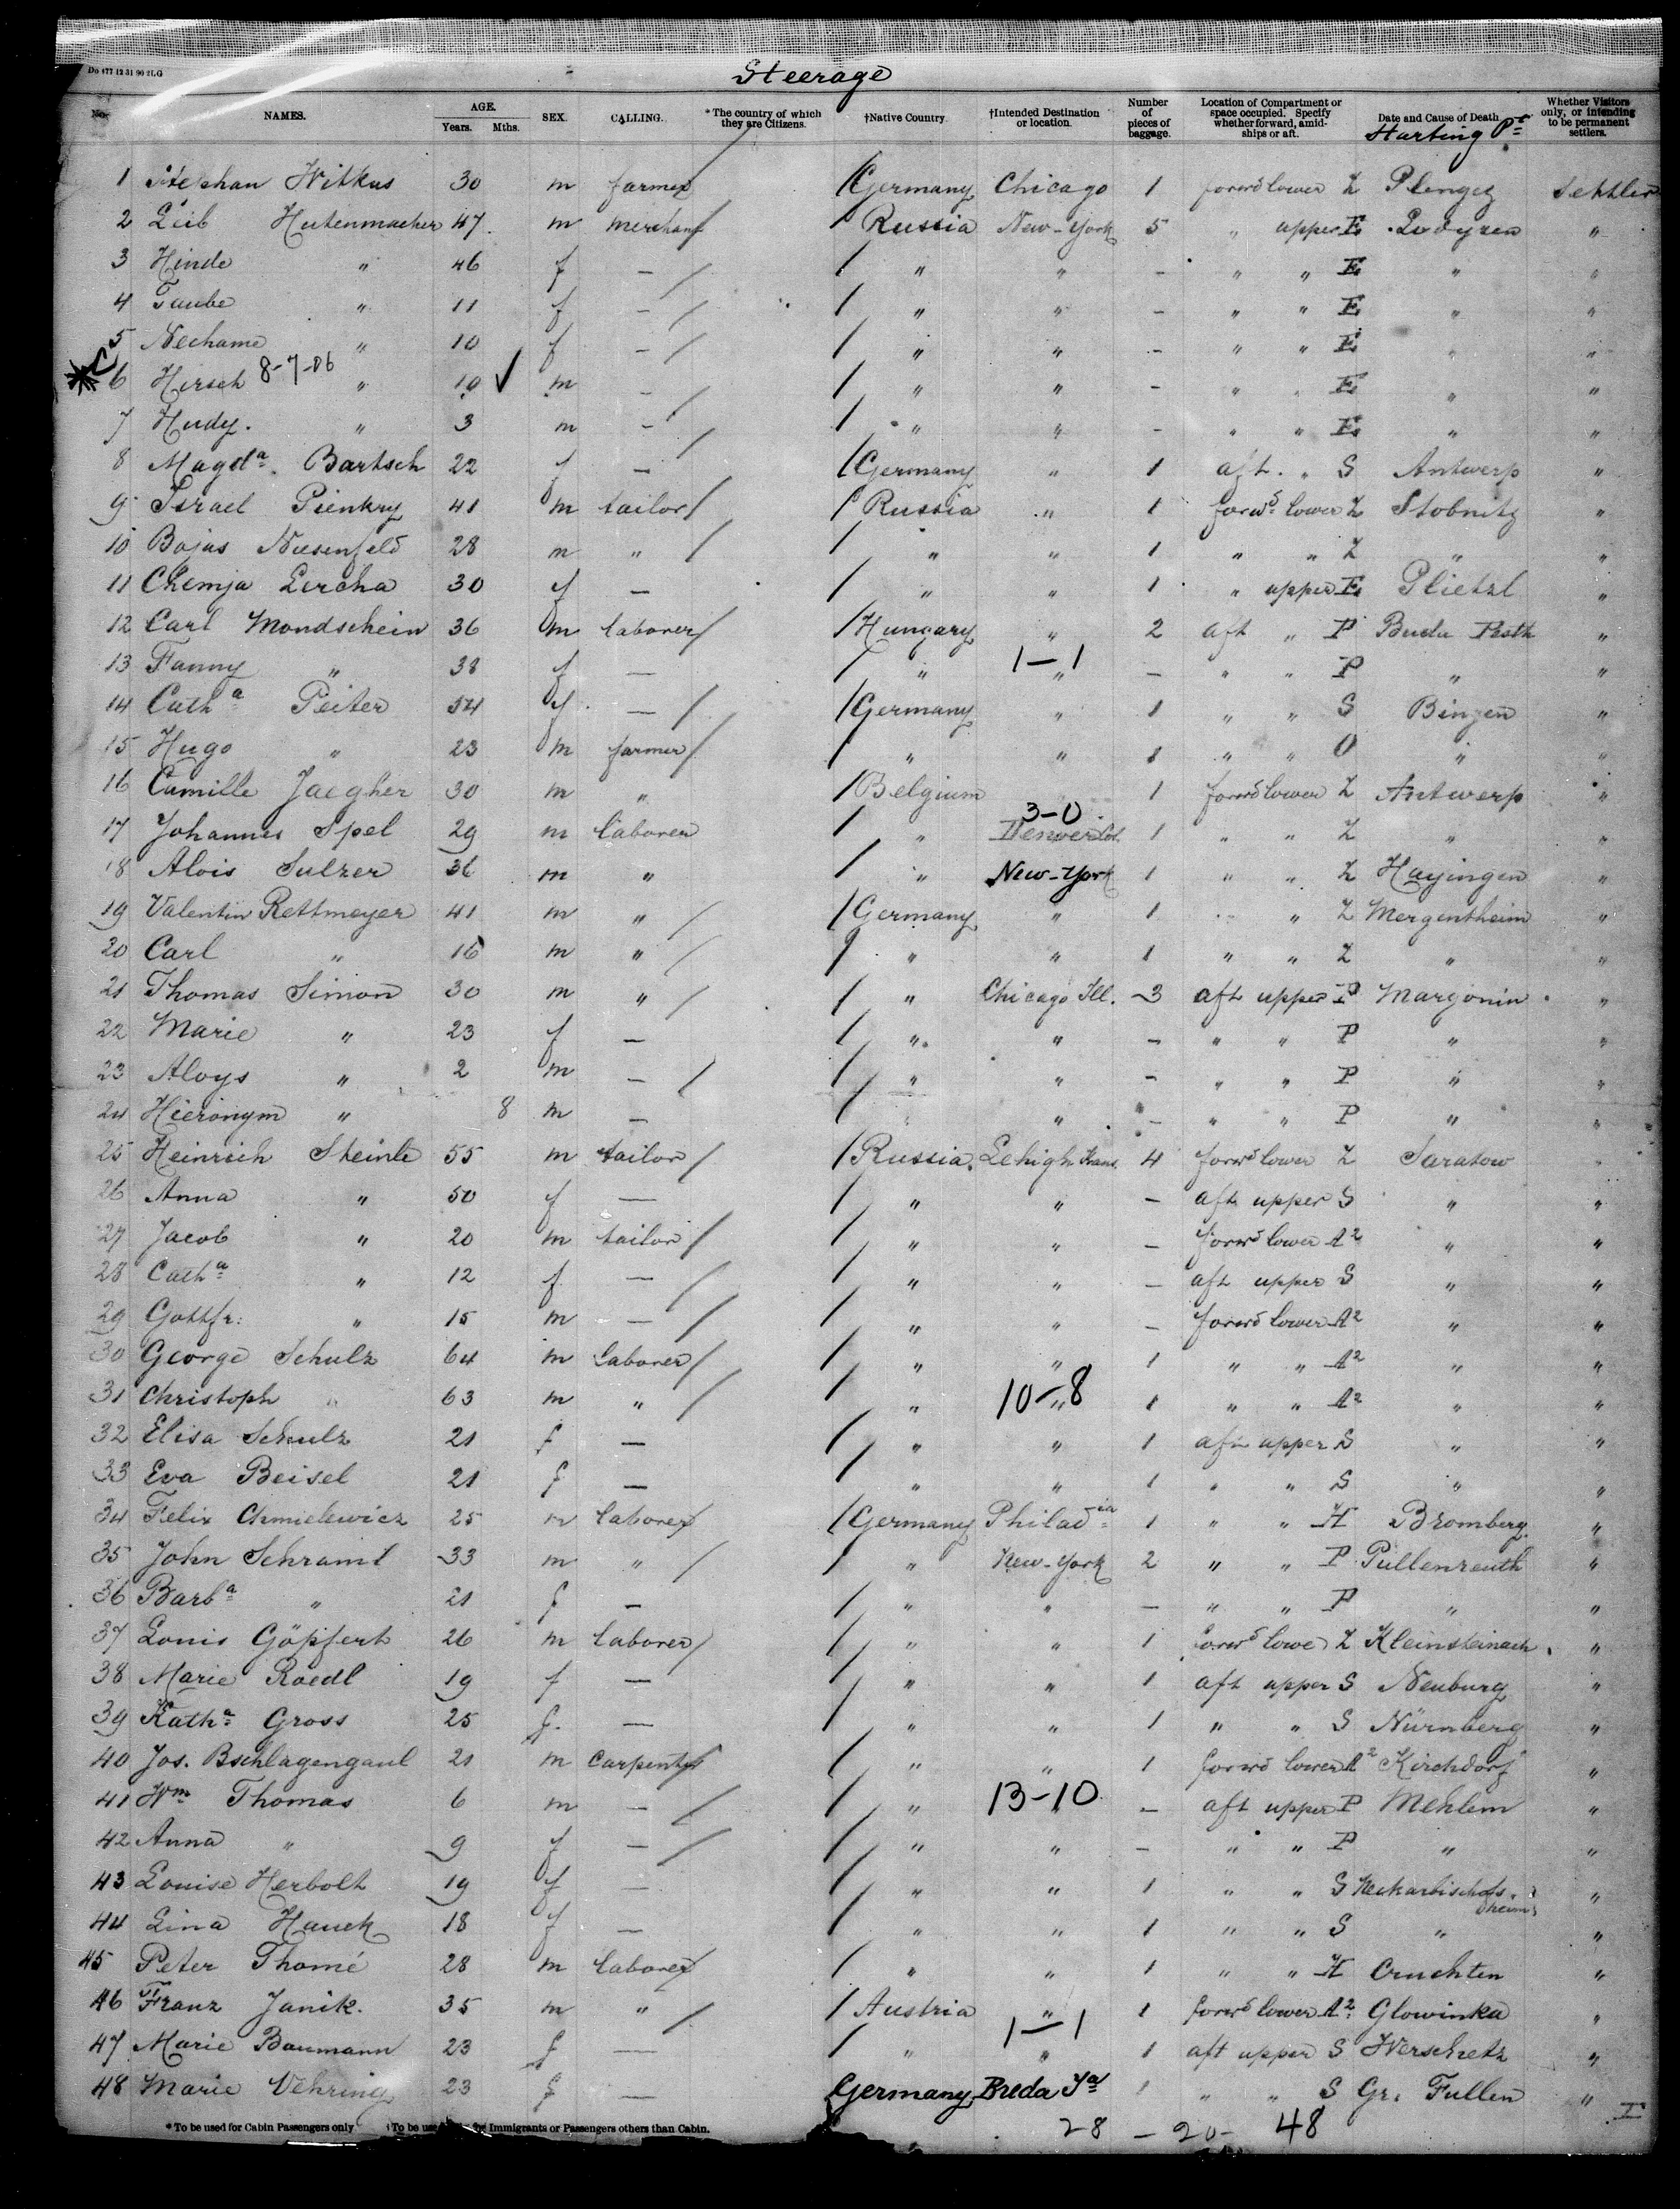 Do 477 12 31 90 2LG
Steerage
No. NAMES. AGE. Years. Mths. SEX. CALLING. *The country of which they are Citizens. †Native Country. †Intended Destination or location. Number of pieces of baggage. Location of Compartment or space occupied. Specify whether forward, amidships or aft. Date and Cause of Death Whether Visitors only, or intending to be permanent settlers.
Starting Pt
1 Stephan Witkus 30 m farmer Germany Chicago 1 forwd lower Z Plengez Settler
2 Leib Hutenmacher 47 m merchant Russia New-York 5 " upper E "
3 Hinde " 46 f — " " - " " E " "
4 Taube " 11 f — " " - " " E " "
5 Nechame " 10 f — " " - " " E " "
C 6 Hirsch 8-7-06 " 10 ✓ m — " " - " " E " "
7 Hudy. " 3 m — " " - " " E " "
8 Magda. Bartsch 22 f — Germany " 1 aft. " S Antwerp "
9 Israel Pienkry 41 m tailor Russia " 1 forwd lower Z Stobnitz "
10 Bojas Niesenfeld 28 m " " " 1 " " Z " "
11 Chemja Lercha 30 f — " " 1 " upper E Plietzl "
12 Carl Mondschein 36 m laborer Hungary " 2 aft " P Buda Pesth "
13 Fanny " 38 f — " 1-1 " - " " P " "
14 Catha Peiter 54 f — Germany " 1 " " S Bingen "
15 Hugo " 23 m farmer " " 1 " " O " "
16 Camille Jaegher 30 m " Belgium 1 forwd lower Z Antwerp "
17 Johannes Spel 29 m laborer " 3-0 Denver Col. 1 " " Z " "
18 Alois Sulzer 36 m " " New-York 1 " " Z Hayingen "
19 Valentin Rettmeyer 41 m " Germany " 1 " " Z Mergentheim "
20 Carl " 16 m " " " 1 " " Z " "
21 Thomas Simon 30 m " " Chicago Ill. 3 aft upper P Margonin "
22 Marie " 23 f — " " - " " P " "
23 Aloys " 2 m — " " - " " P " "
24 Hieronym " 8 m — " " - " " P " "
25 Heinrich Steinle 55 m tailor Russia. Lehigh Kans. 4 forwd lower Z Saratow "
26 Anna " 50 f — " " - aft upper S " "
27 Jacob " 20 m tailor " " - forwd lower A2 " "
28 Catha " 12 f — " " - aft upper S " "
29 Gottfr: " 15 m — " " - forwd lower A2 " "
30 George Schulz 64 m laborer " " 1 " " A2 " "
31 Christoph " 63 m " " 10-8 " 1 " " A2 " "
32 Elisa Schulz 21 f — " " 1 aft upper S " "
33 Eva Beisel 21 f — " " 1 " " S " "
34 Felix Chmielewicz 25 m laborer Germany Philadia 1 " " H Bromberg "
35 John Schraml 33 m " " New-York 2 " " P Pullenreuth "
36 Barba " 21 f — " " — " " P " "
37 Louis Göpfert 26 m laborer " " 1 forwd lowe Z Kleinsteinach "
38 Marie Roedl 19 f — " " 1 aft upper S Neuburg "
39 Katha Gross 25 f. — " " 1 " " S Nürnberg "
40 Jos. Bschlagengaul 21 m carpenter " " 1 forwd lower A2 Kirchdorf "
41 Wm Thomas 6 m — " 13-10 - aft upper P Mehlem "
42 Anna " 9 f — " " - " " P " "
43 Louise Herbolt 19 f — " " 1 " " S Neckarbischofsheim "
44 Lina Hauck 18 f — " " 1 " " S " "
45 Peter Thomé 28 m laborer " " 1 " " H Cruchten "
46 Franz Janik. 35 m " Austria " 1 forwd lower A2 Glowinka "
47 Marie Baumann 23 f — " 1-1 " 1 aft upper S Werschetz "
48 Marie Vehring 23 f — Germany Breda Ya 1 " " S Gr. Fullen "
*To be used for Cabin Passengers only †To be Immigrants or Passengers others than Cabin.
28 - 20 - 48